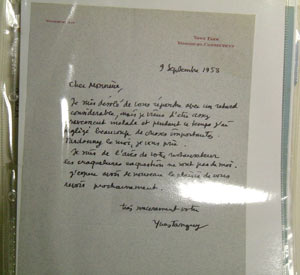 Town Farm
Woodbury, Connecticut
9 Septembre 1953
Cher Monsieur,
Je suis désolé de vous répondre avec un retard
considérable, mais je viens d'être assez
sérieusement malade et pendant ce temps j'ai
négligé beaucoup de choses importantes.
Pardonnez le moi, je vous prie.
Je suis de l'avis de votre restaurateur
les craquelures en question ne sont pas de moi.
J'espère avoir de nouveau le plaisir de vous
revoir prochainement.
très sincèrement votre
Yves Tanguy